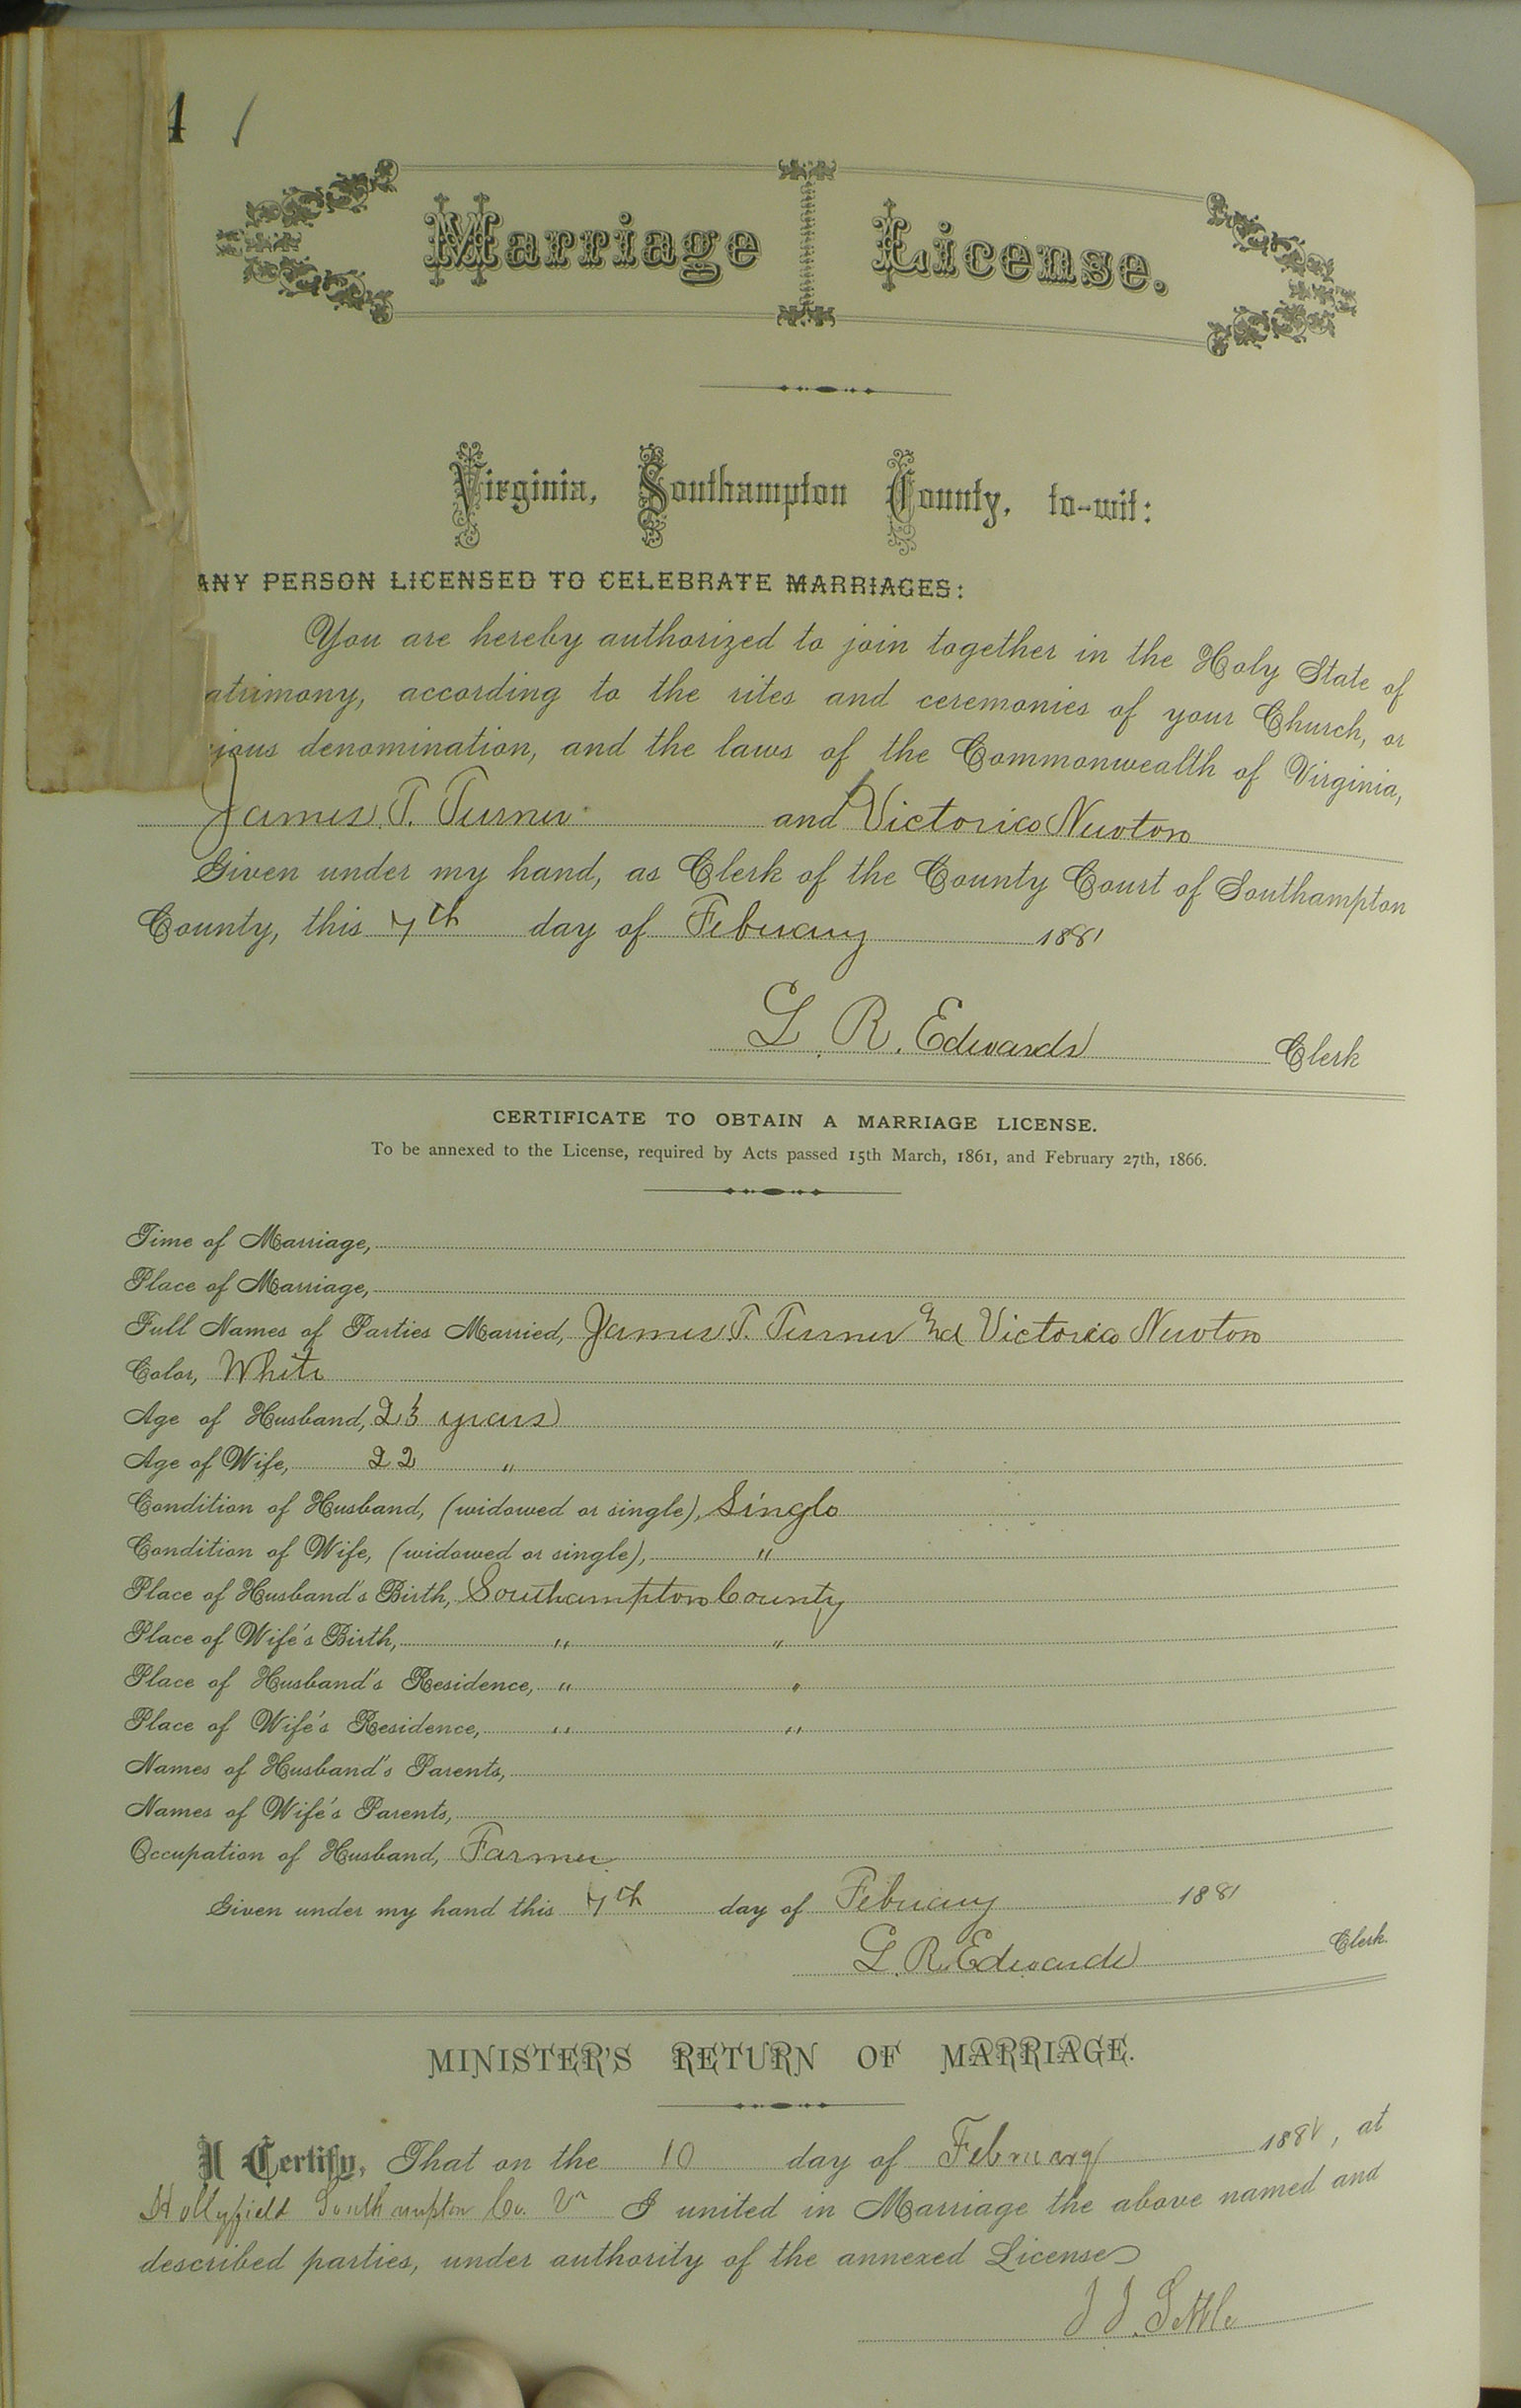 4
Marriage License.
Virginia, Southampton County, to-wit:
ANY PERSON LICENSED TO CELEBRATE MARRIAGES:
You are hereby authorized to join together in the Holy State of
atrimony, according to the rites and ceremonies of your Church, or
ious denomination, and the laws of the Commonwealth of Virginia,
James T. Turner and Victoria Newton
Given under my hand, as Clerk of the County Court of Southampton
County, this 7th day of February 1881
L. R. Edwards Clerk
CERTIFICATE TO OBTAIN A MARRIAGE LICENSE.
To be annexed to the License, required by Acts passed 15th March, 1861, and February 27th, 1866.
Time of Marriage,
Place of Marriage,
Full Names of Parties Married, James T. Turner and Victoria Newton
Color, White
Age of Husband, 23 years
Age of Wife, 22 "
Condition of Husband, (widowed or single), Single
Condition of Wife, (widowed or single), "
Place of Husband's Birth, Southampton County
Place of Wife's Birth, " "
Place of Husband's Residence, " "
Place of Wife's Residence, " "
Names of Husband's Parents,
Names of Wife's Parents,
Occupation of Husband, Farmer
Given under my hand this 7th day of February 1881
L. R. Edwards Clerk.
MINISTER'S RETURN OF MARRIAGE.
I Certify, That on the 10 day of February 1881, at
Hollyfield Southampton Co. Va I united in Marriage the above named and
described parties, under authority of the annexed License
J. J. Settle